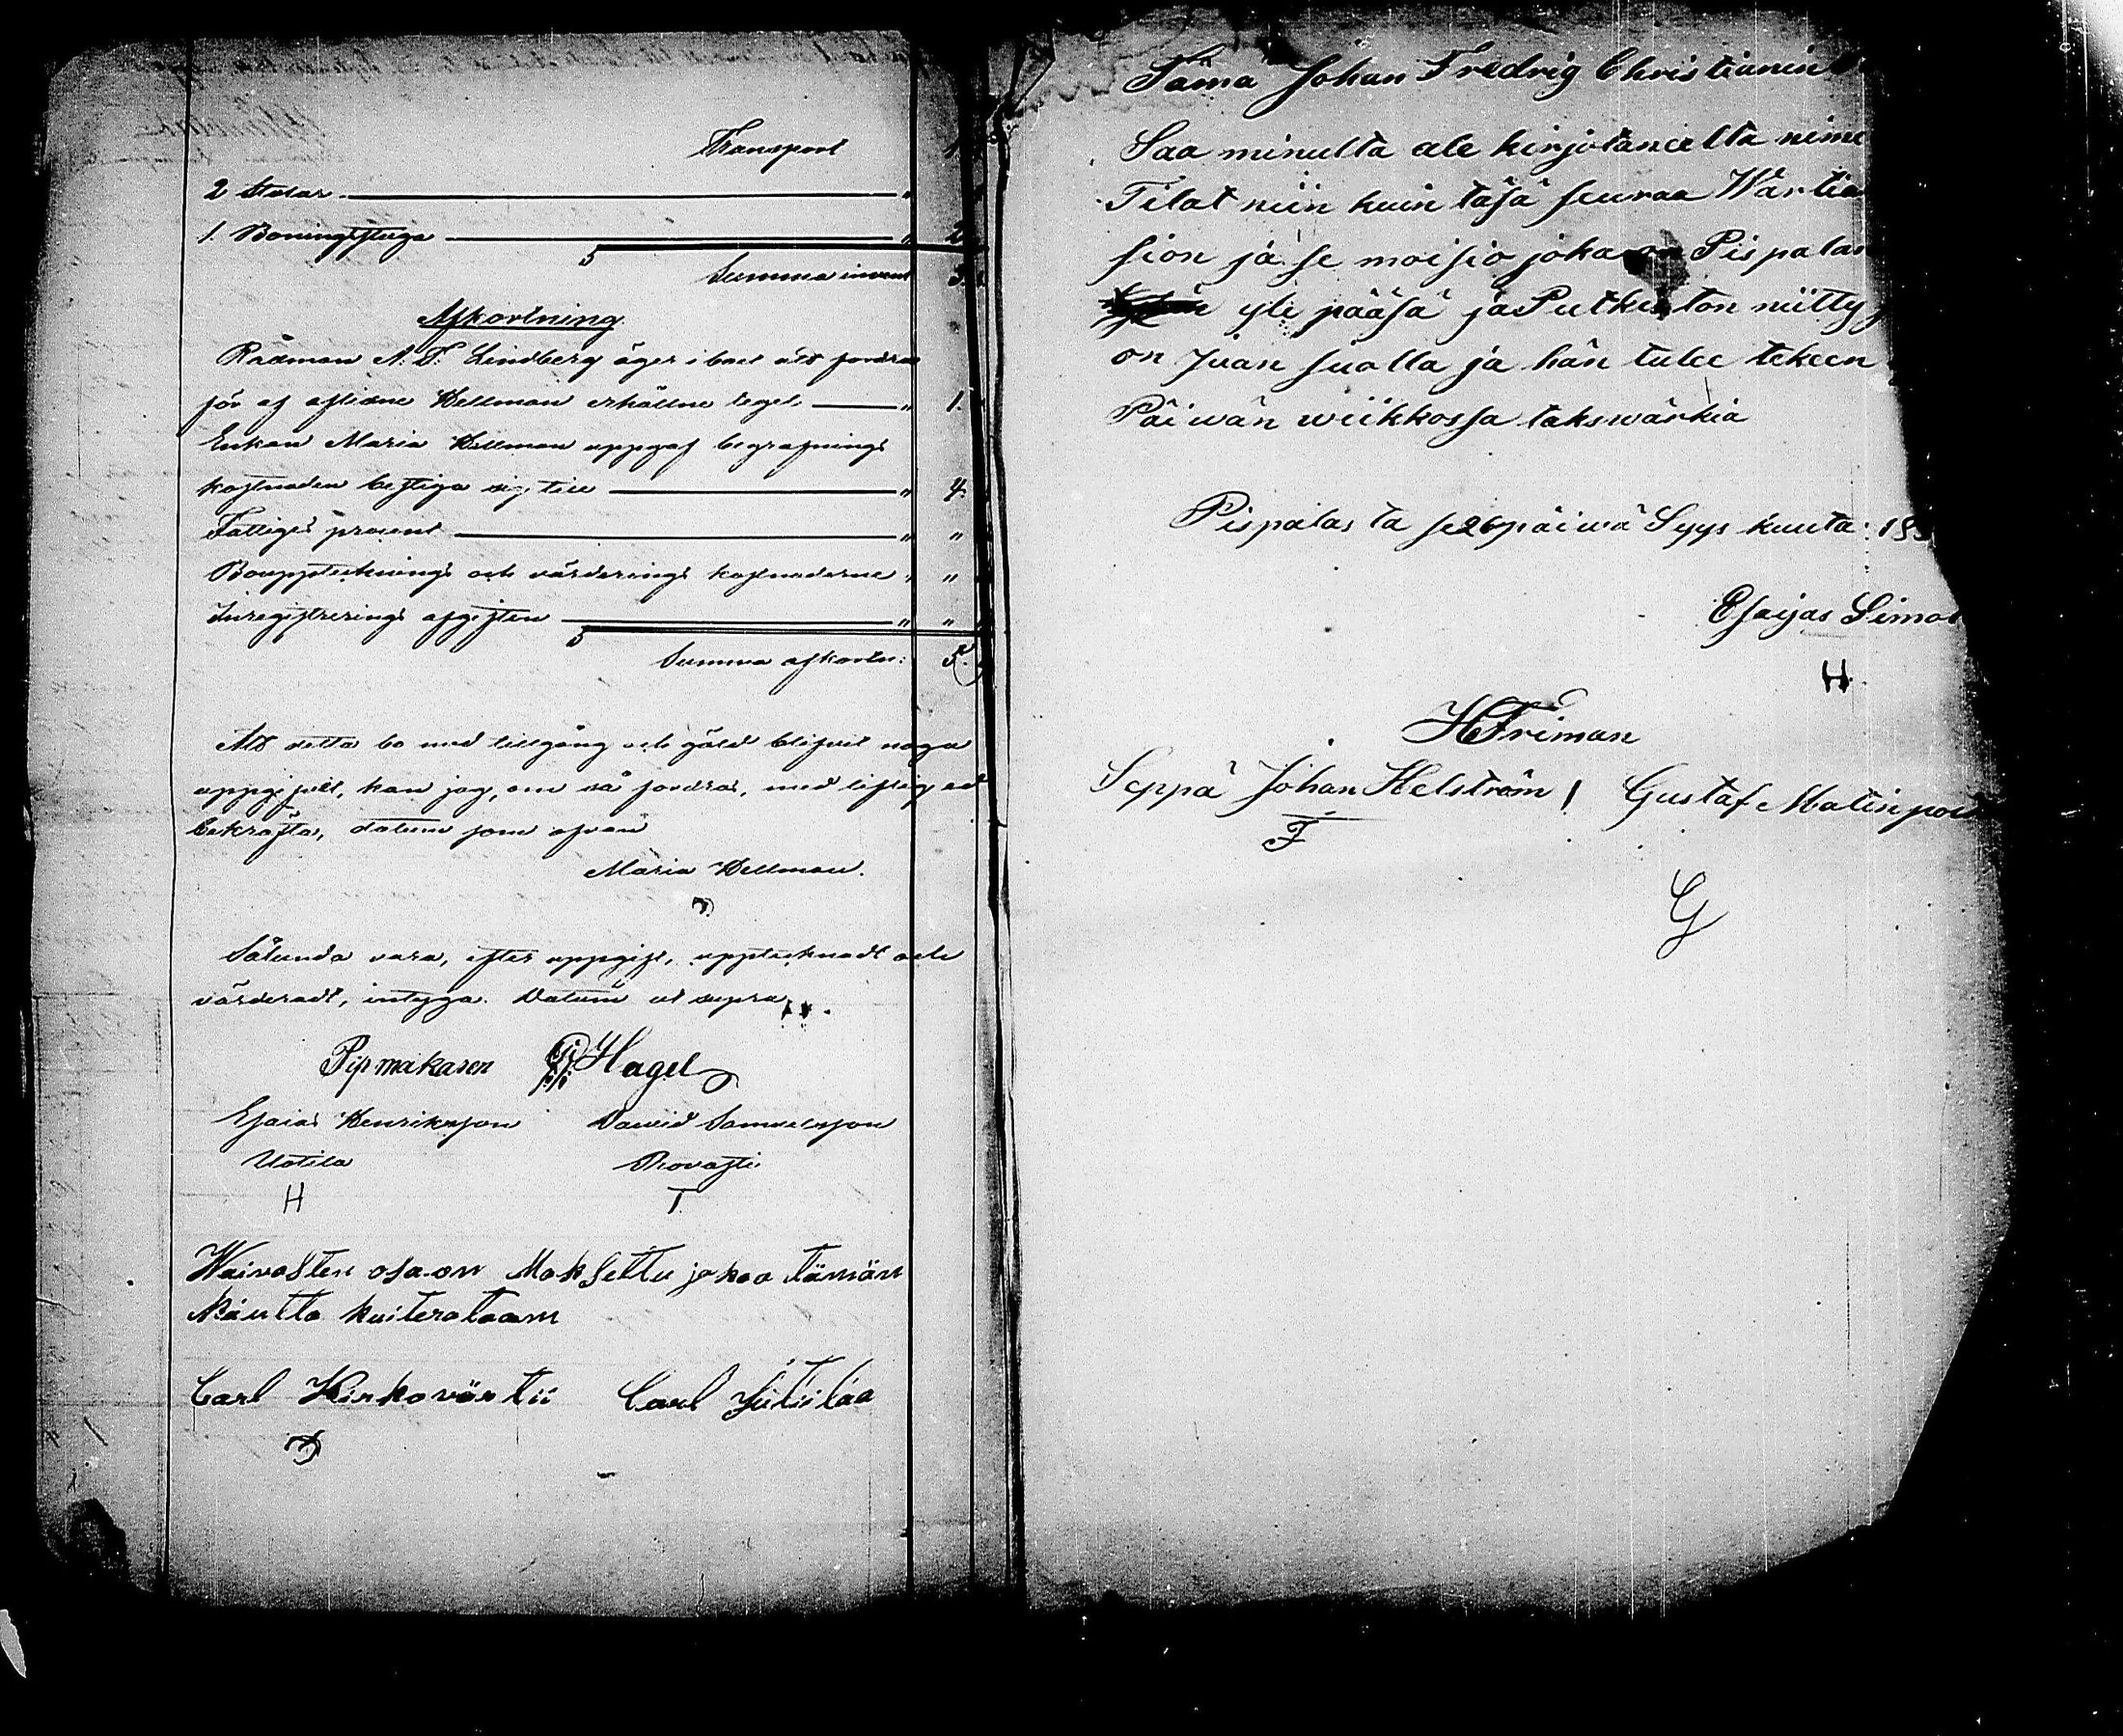 Transport
2 Stolar "
1. Boningsstuga " 2
Summa invent 3.
Afkortning.
Rådman N. F. Lindberg äger i boet att fordra
för af aflidne Hellman erhållne tegel " 1.
Enkan Maria Hellman uppgaf begrafnings
kostnaden bestiga sig till " 4.
Fattiges procent " "
Bouppteknings och värderings kostnaderne " "
Inregistrerings afgiften " "
Summa afkortn: 5.
Att detta bo med tillgång och gäld blifvit noga
uppgifvit, kan jag, om så fordras, med liflig ed
bekräfta, datum som ofvan
Maria Hellman.
Sålunda vara, efter uppgift, upptecknadt och
värderadt, intyga. Datum ut supra
Pipmakaren Hagel
Esaias Henriksson David Samuelsson
Uotila Provasti
H T
Waivasten osa on Maksettu joka tämän
Kautta kuiterataan
Carl Kirkovärtii Carl
Tämä Johan Fredrig Christianin
Saa minulta ale kirjotaneelta nime
Tilat niin kuin täsä seuraa Wärtia
sion ja se moisio joka on Pispalan
yle pääsä ja Putkiston niitty j
on Juan sualla ja hän tulee tekeen
Päiwän wiikkossa takswärkiä
Pispalas ta se 26 päiwä Syys kuuta: 18
Esaijas Simol
H
H Friman
Seppä Johan Helström Gustaf Matinpoi
F
G